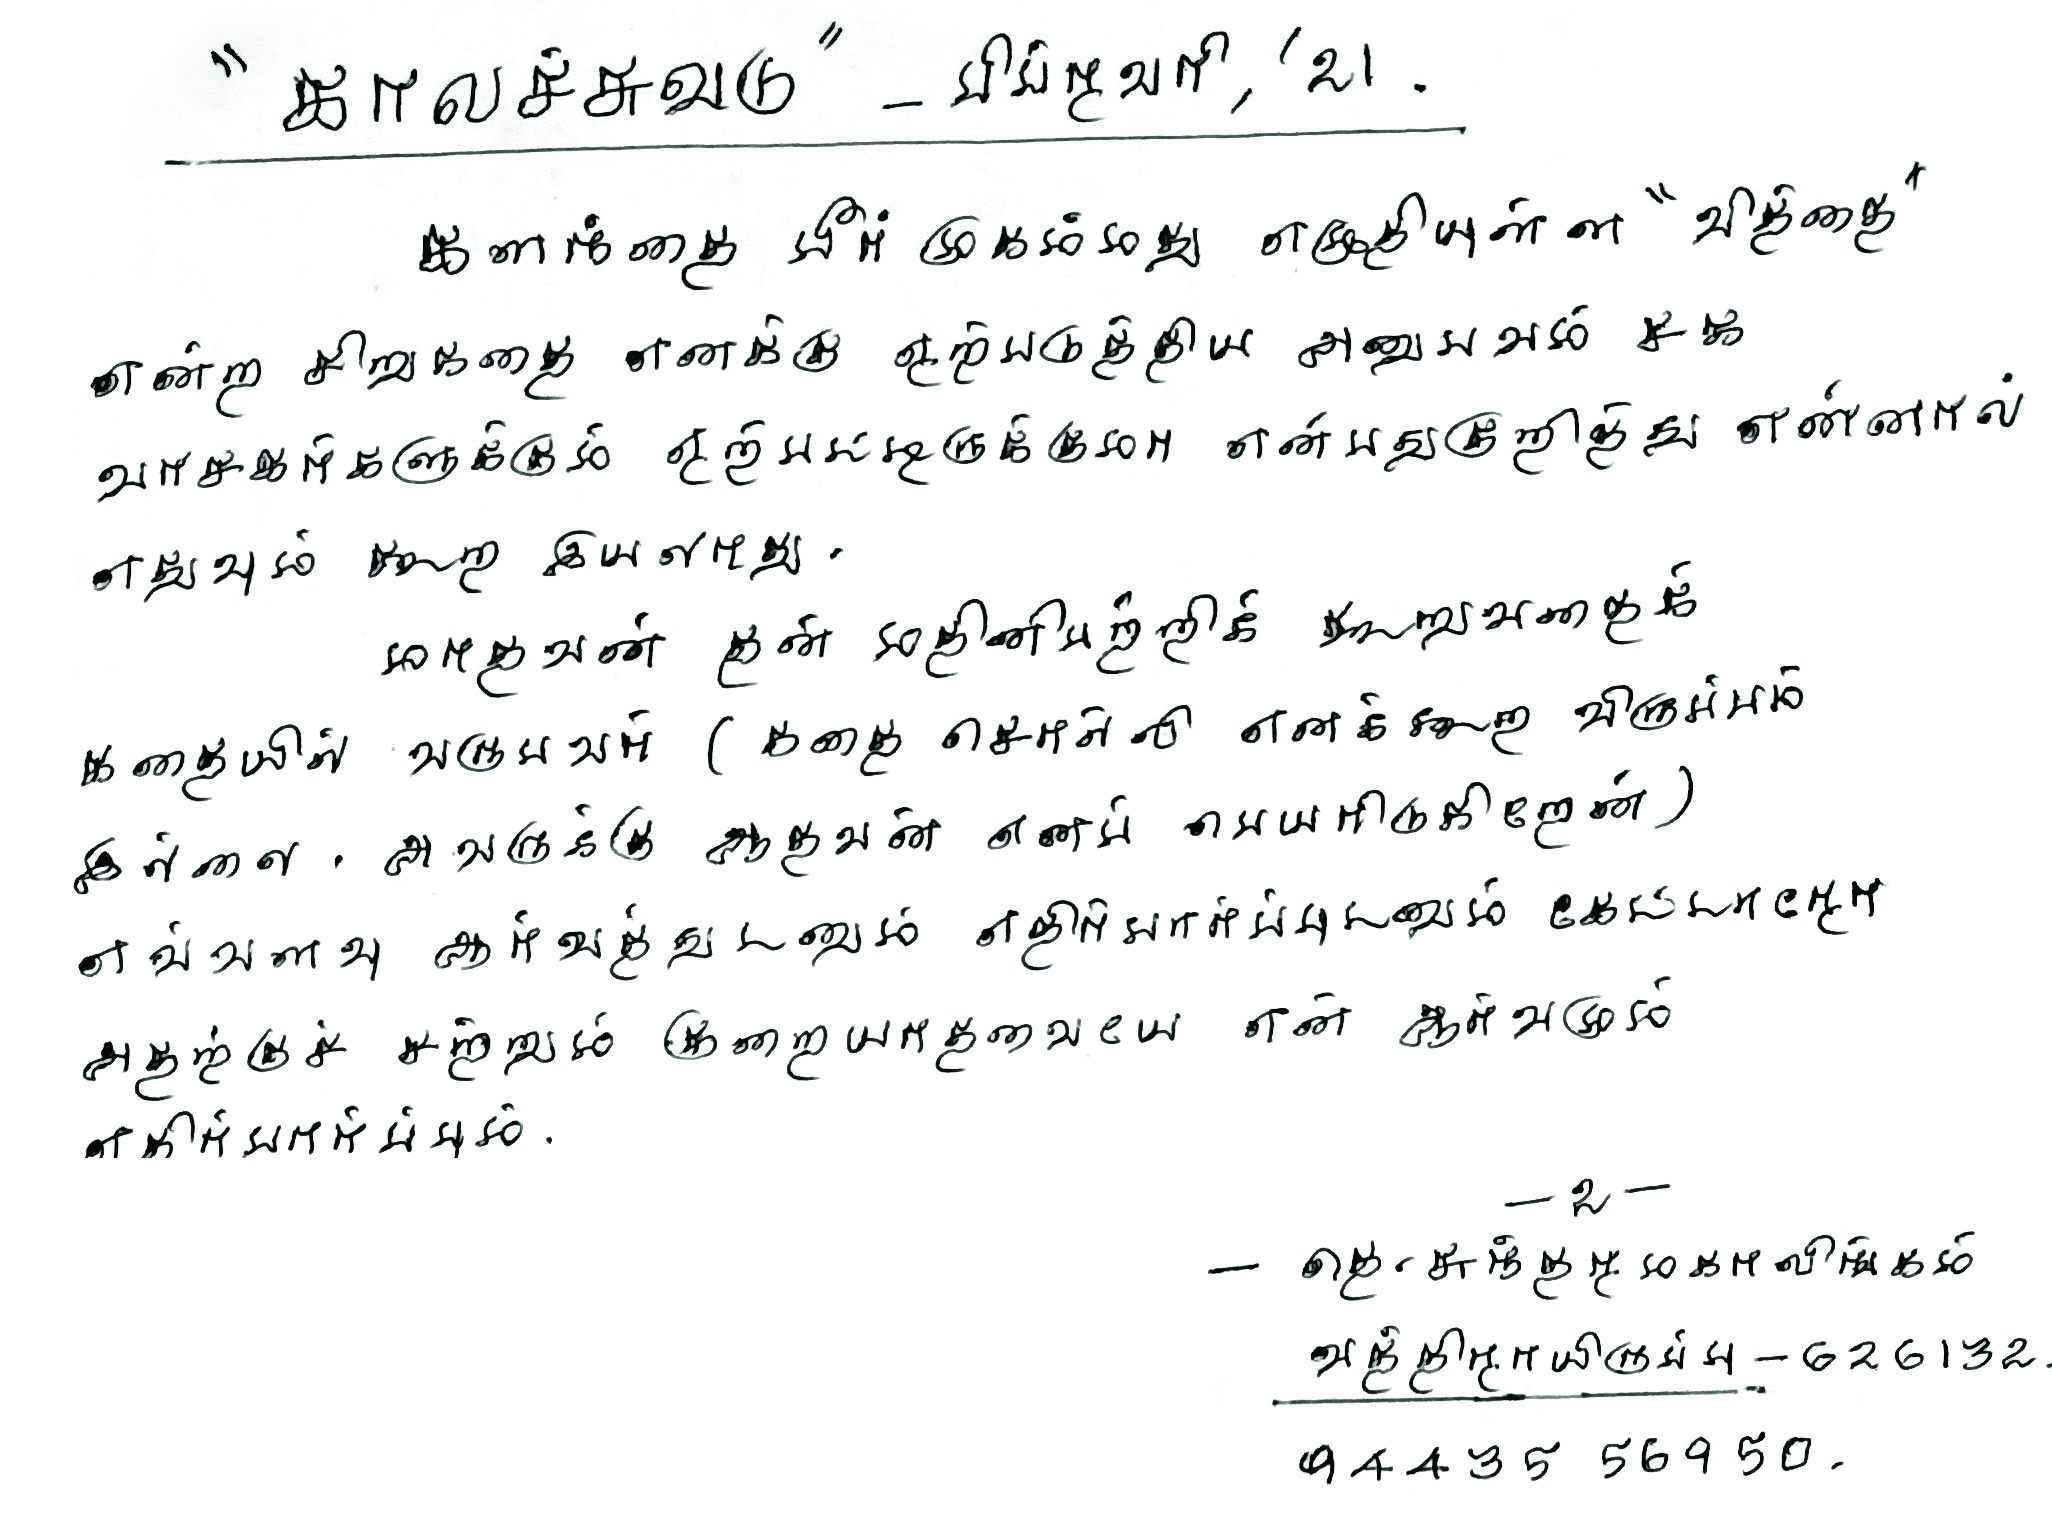 "காலச்சுவடு" – பிப்ரவரி, '21.
களந்தை பீர் முகம்மது எழுதியுள்ள "வித்தை"
என்ற சிறுகதை எனக்கு ஏற்படுத்திய அனுபவம் சக
வாசகர்களுக்கும் ஏற்பட்டிருக்குமா என்பதுகுறித்து என்னால்
எதுவும் கூற இயலாது.
மாதவன் தன் மதினிபற்றிக் கூறுவதைக்
கதையில் வருபவர் (கதை சொல்லி எனக்கூற விருப்பம்
இல்லை. அவருக்கு ஆதவன் எனப் பெயரிடுகிறேன்)
எவ்வளவு ஆர்வத்துடனும் எதிர்பார்ப்புடனும் கேட்டாரோ
அதற்குச் சற்றும் குறையாதவையே என் ஆர்வமும்
எதிர்பார்ப்பும்.
– 2 –
– தெ. சுந்தரமகாலிங்கம்
வத்திராயிருப்பு – 626132.
94435 56950.